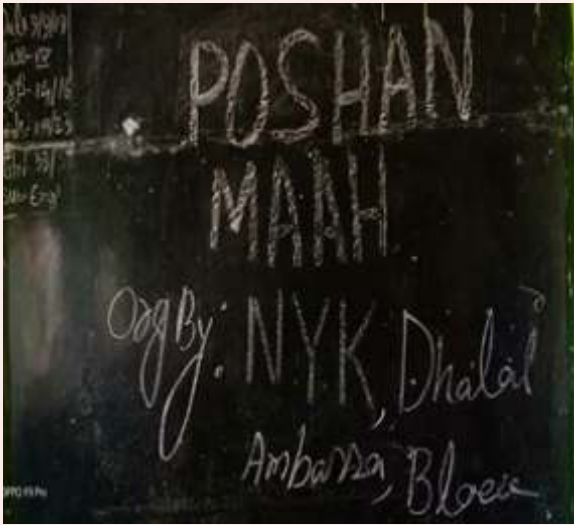 POSHAN
MAAH
Org By: NYK, Dhalai
Ambassa, Block